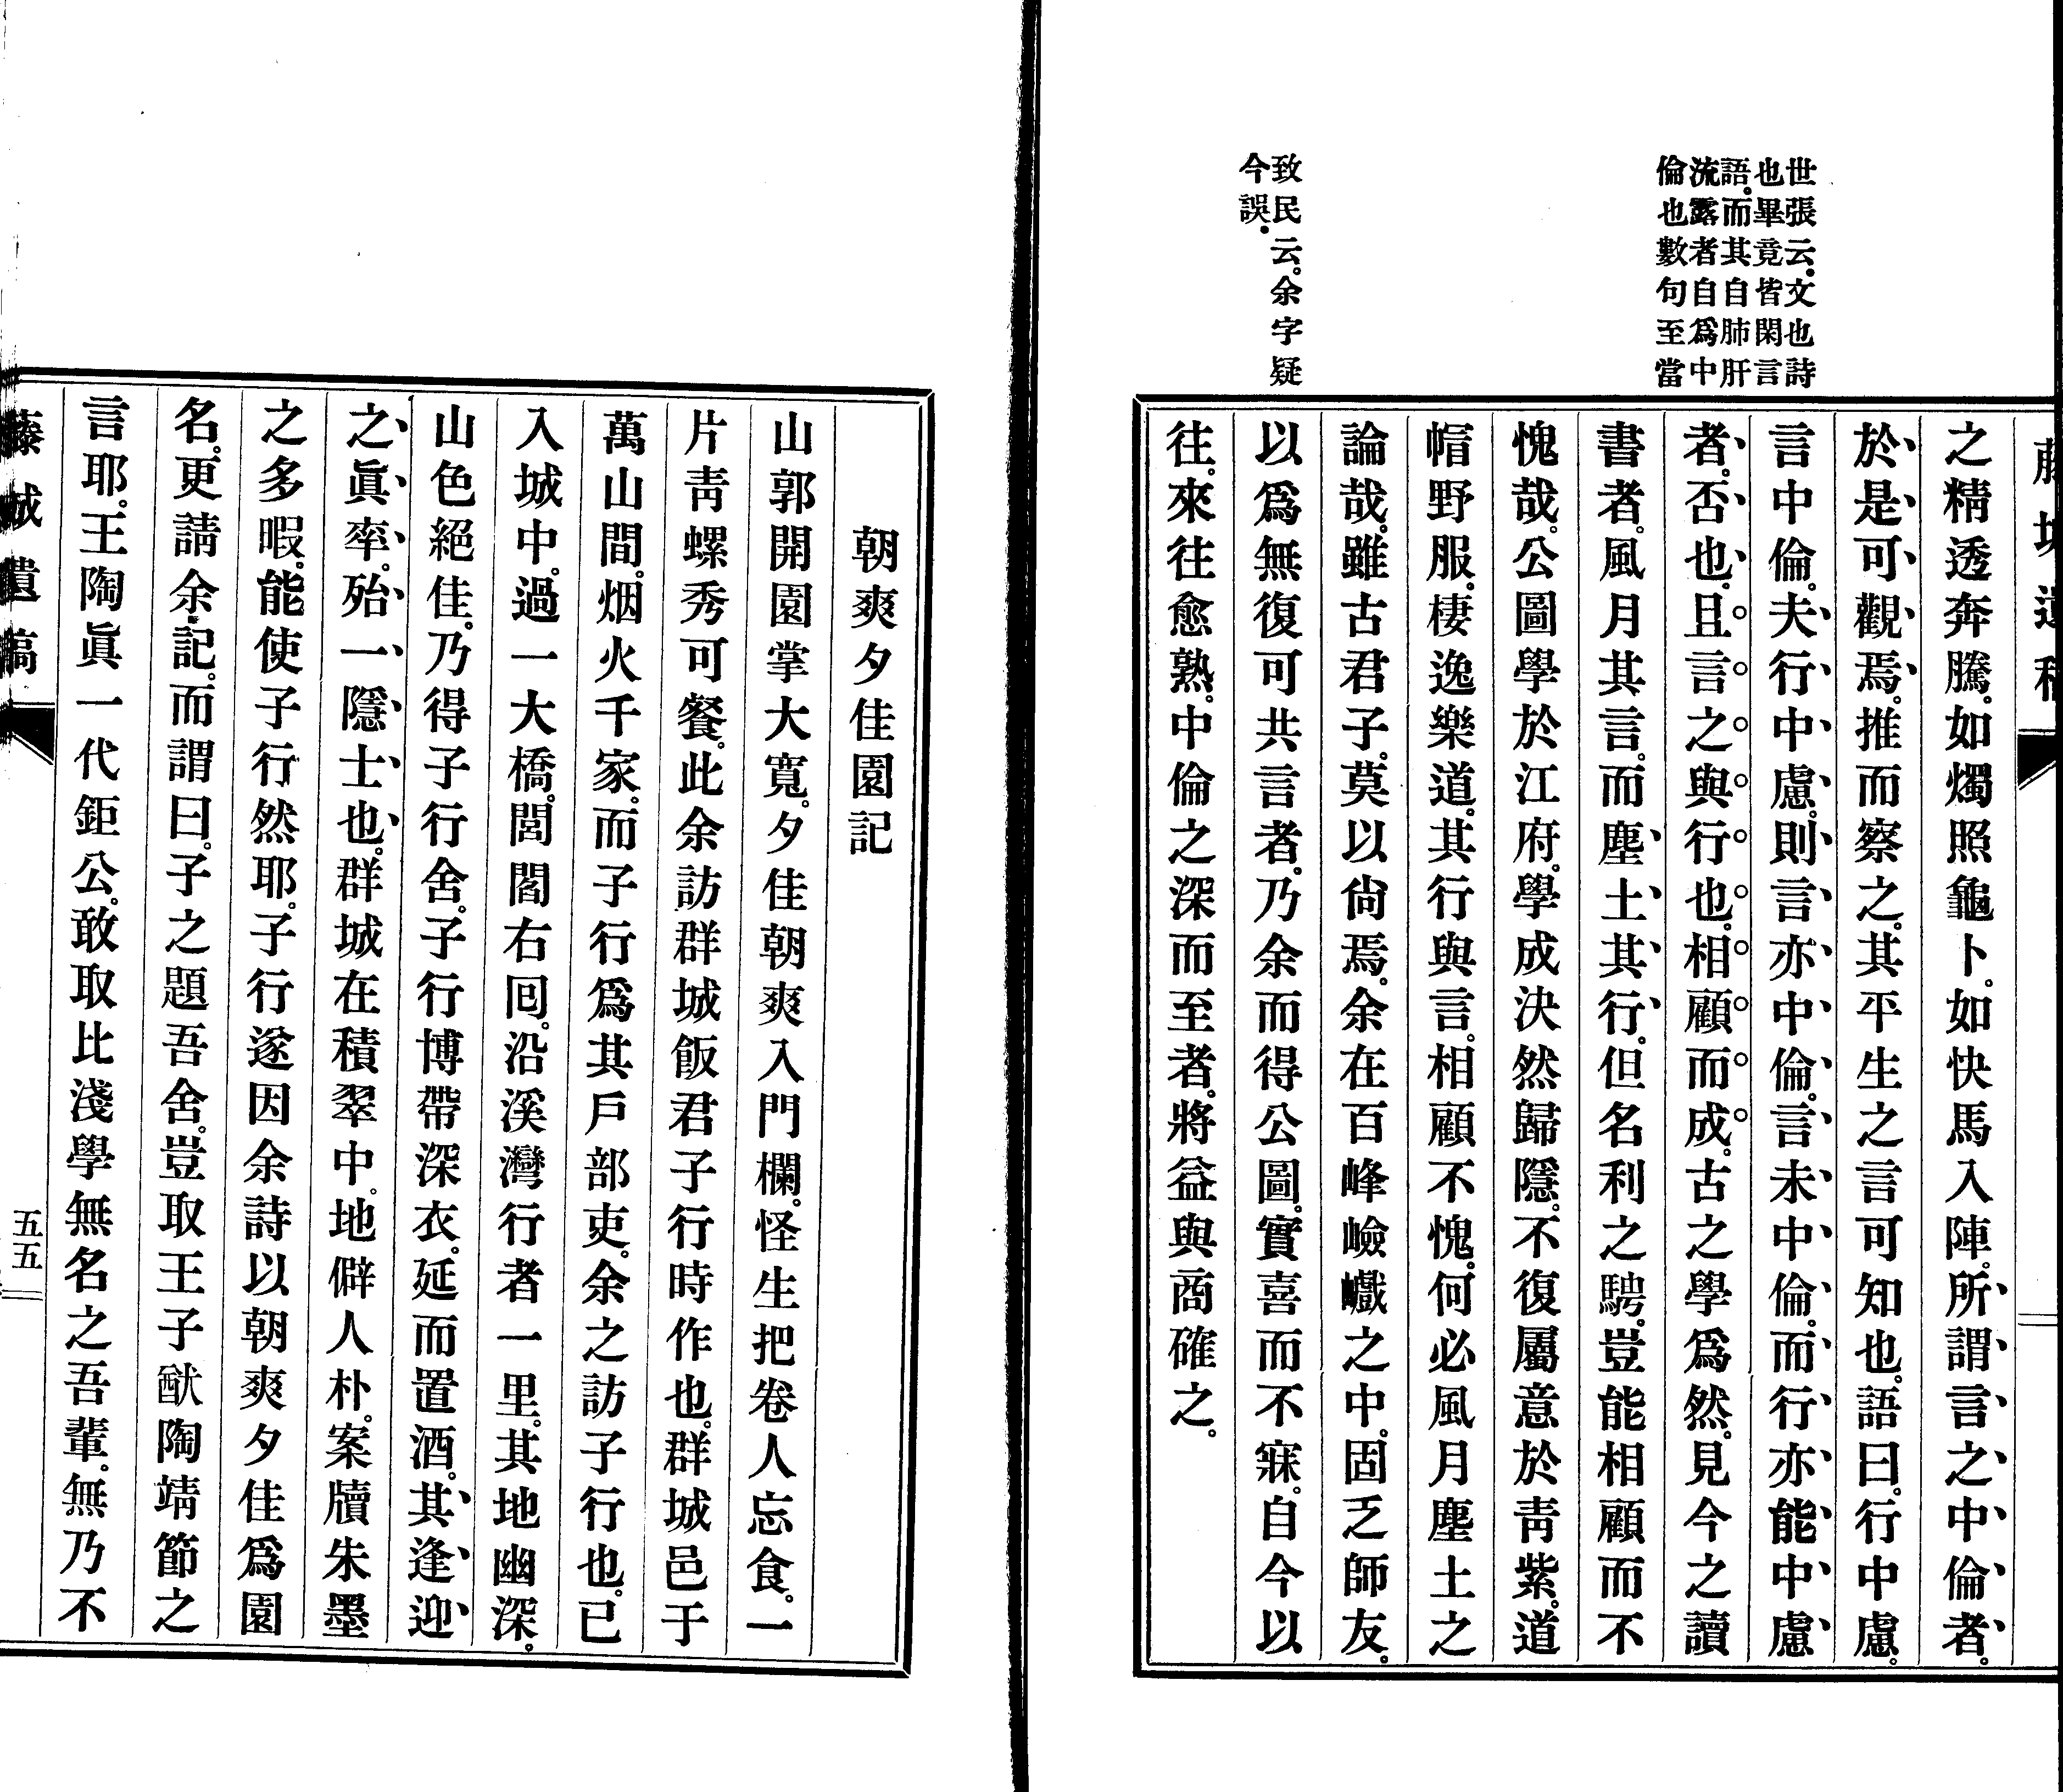 藤城遺稿
世張云。文也詩
也畢竟皆閑言
語。而其自肺肝
流露者自爲中
倫也數句至當
致民云。余字疑
今誤。
之精透奔騰。如燭照龜卜。如快馬入陣。所謂言之中倫者。
於是可觀焉。推而察之。其平生之言可知也。語曰。行中慮。
言中倫。夫行中慮。則言亦中倫。言未中倫。而行亦能中慮
者。否也。且言之與行也。相顧而成。古之學爲然。見今之讀
書者。風月其言。而塵土其行。但名利之騁。豈能相顧而不
愧哉。公圖學於江府。學成決然歸隱。不復屬意於靑紫。道
帽野服。棲逸樂道。其行與言。相顧不愧。何必風月塵土之
論哉。雖古君子。莫以尙焉。余在百峰嶮巇之中。固乏師友。
以爲無復可共言者。乃余而得公圖。實喜而不寐。自今以
往。來往愈熟。中倫之深而至者。將益與商確之。
朝爽夕佳園記
山郭開園掌大寬。夕佳朝爽入門欄。怪生把卷人忘食。一
片靑螺秀可餐。此余訪群城飯君子行時作也。群城邑于
萬山間。烟火千家。而子行爲其戶部吏。余之訪子行也。已
入城中。過一大橋。閭閻右回。沿溪灣行者一里。其地幽深。
山色絕佳。乃得子行舍。子行博帶深衣。延而置酒。其逢迎
之眞率。殆一隱士也。群城在積翠中。地僻人朴。案牘朱墨
之多暇。能使子行然耶。子行遂因余詩以朝爽夕佳爲園
名。更請余記。而謂曰。子之題吾舍。豈取王子猷陶靖節之
言耶。王陶眞一代鉅公。敢取比淺學無名之吾輩。無乃不
藤城遺稿
五五